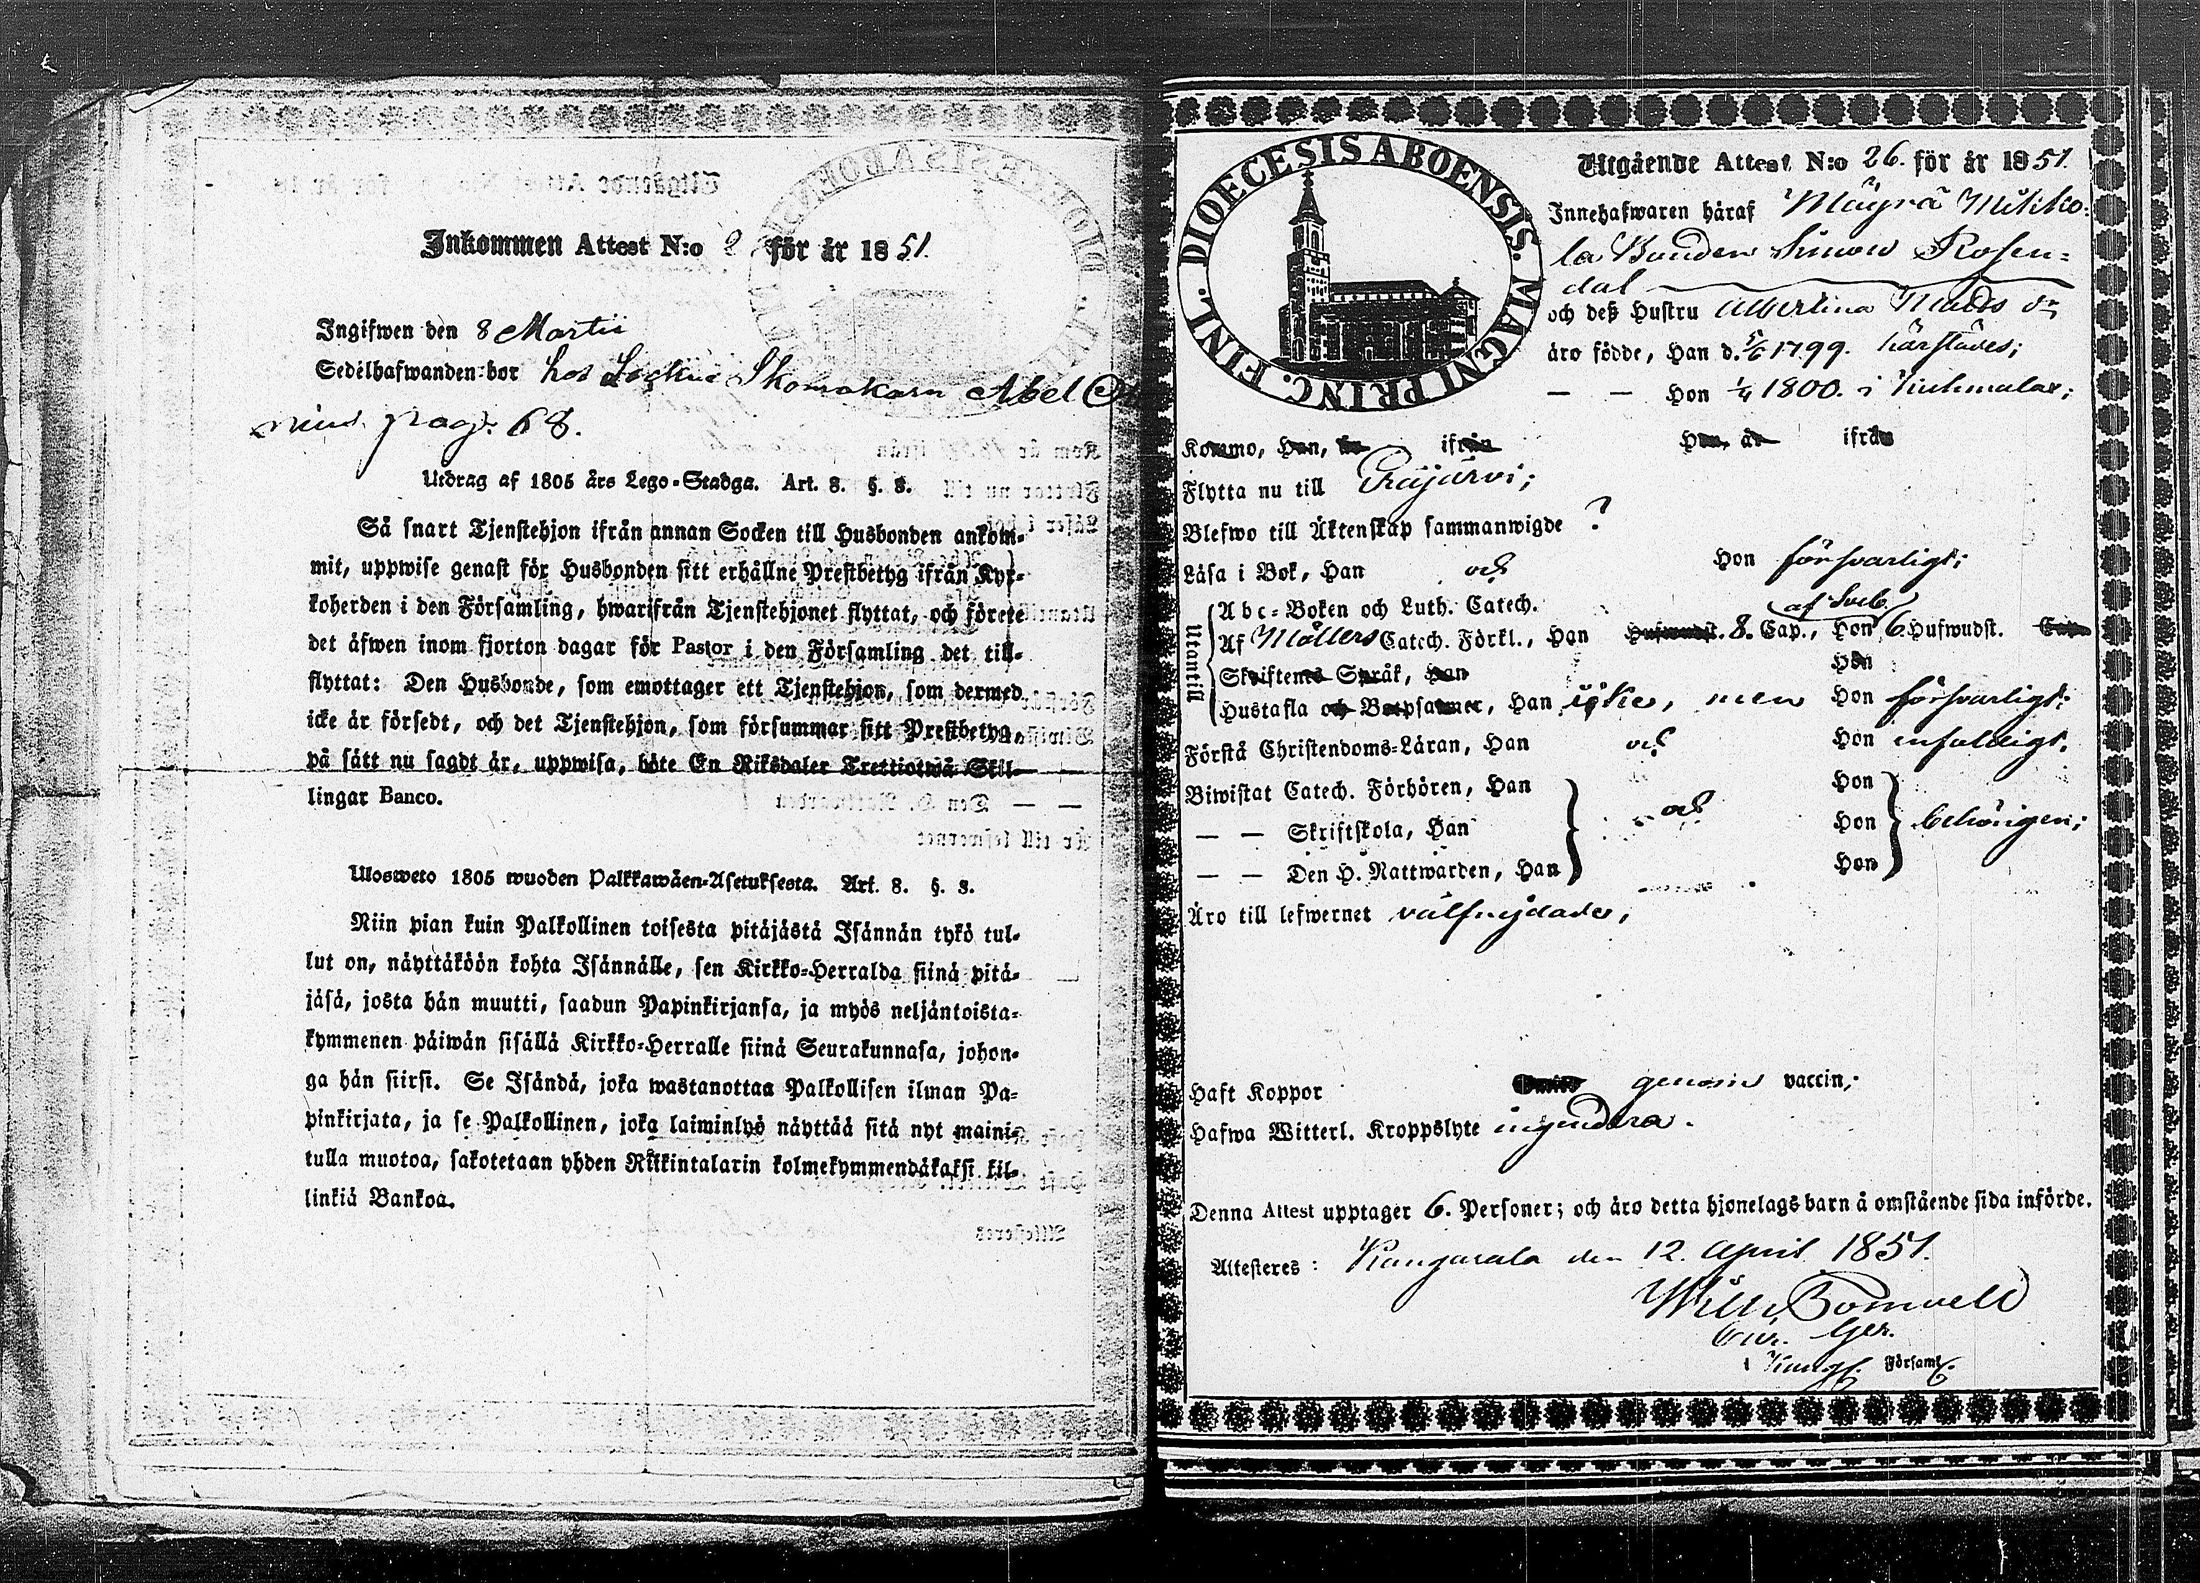 Inkommen Attest N:o 2 för år 1851.
Ingifwen den 8 Martii
Sedelhafwanden bor hos Skomakarn Abel
pag. 68.
Utdrag af 1805 års Lego-Stadga. Art. 8. §. 8.
Så snart Tjenstehjon ifrån annan Socken till Husbonden ankom-
mit, uppwise genast för Husbonden sitt erhållne Prestbetyg ifrån Kyr-
koherden i den Församling, hwarifrån Tjenstehjonet flyttat, och förete
det äfwen inom fjorton dagar för Pastor i den Församling det till-
flyttat: Den Husbonde, som emottager ett Tjenstehjon, som dermed
icke är försedt, och det Tjenstehjon, som försummar sitt Prestbetyg,
på sätt nu sagdt är, uppwisa, böte En Riksdaler Trettiotwå Skil-
lingar Banco.
Ulosweto 1805 wuoden Palkkawäen-Asetuksesta. Art. 8. §. 8.
Niin pian kuin Palkollinen toisesta pitäjästä Isännän tykö tul-
lut on, näyttäköön kohta Isännälle, sen Kirkko-Herralda siinä pitä-
jäsä, josta hän muutti, saadun Papinkirjansa, ja myös neljäntoista-
kymmenen päiwän sisällä Kirkko-Herralle siinä Seurakunnasa, johon-
ga hän siirsi. Se Isändä, joka wastanottaa Palkollisen ilman Pa-
pinkirjata, ja se Palkollinen, joka laiminlyö näyttää sitä nyt maini-
tulla muotoa, sakotetaan yhden Riikintalarin kolmekymmendäkaksi kil-
linkiä Bankoa.
DIOECESIS ABOENSIS. MAGNI PRINC. FINL.
Utgående Attest N:o 26. för år 1851.
Innehafwaren häraf Mäyrä Mikko-
la Bonden Simon Rosen-
dal
och deß Hustru Albertina Matts dr
äro födde, Han d. 5/6 1799. härstädes;
— — Hon 1/4 1800. i Kuhmalax;
Kommo, Han, år ifrån Hon, år ifrån
Flytta nu till Räijärvi;
Blefwo till Äktenskap sammanwigde ?
Läsa i Bok, Han och Hon försvarligt;
Utantill
Abc-Boken och Luth. Catech. (af Sveb.)
Af Möllers Catech. Förkl., Han Hufwudst. 8. Cap., Hon 6 Hufwudst. Cap.
Skriftens Språk, Han Hon
Hustafla och Botpsalmer, Han icke, men Hon försvarligt;
Förstå Christendoms-Läran, Han och Hon enfaldigt.
Biwistat Catech. Förhören, Han Hon
— — Skriftskola, Han och Hon behörigen;
— — Den H. Nattwarden, Han Hon
Äro till lefwernet välfrejdade,
Haft Koppor genom vaccin;
Hafwa Witterl. Kroppslyte ingendera.
Denna Attest upptager 6. Personer; och äro detta hjonelags barn å omstående sida införde.
Attesteres: Kangasala den 12. April 1851.
Församl.